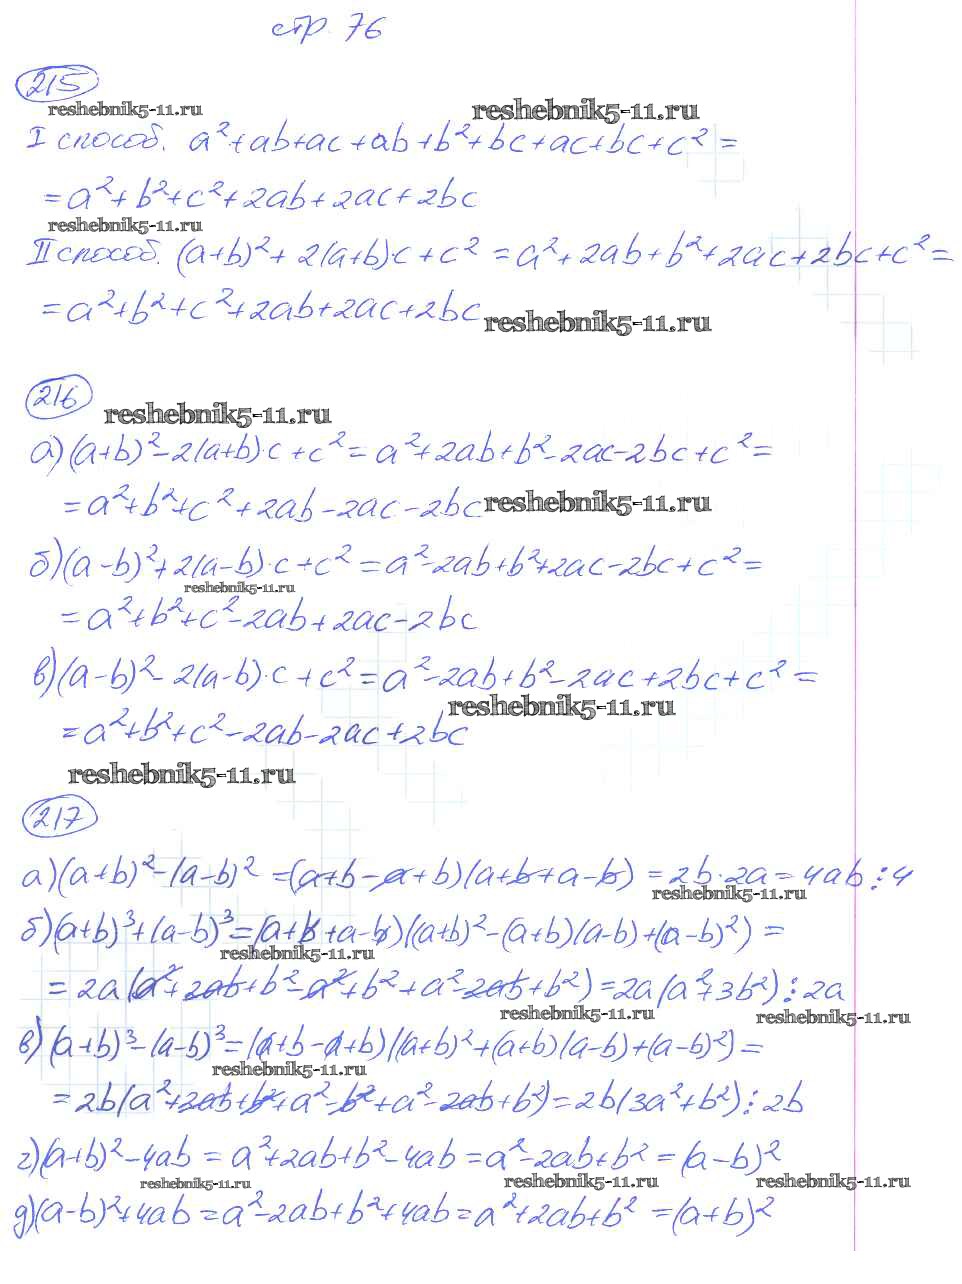 стр. 76
215
reshebnik5-11.ru reshebnik5-11.ru
I способ. a²+ab+ac+ab+b²+bc+ac+bc+c² =
= a²+b²+c²+2ab+2ac+2bc
reshebnik5-11.ru
II способ. (a+b)²+2(a+b)c+c² = a²+2ab+b²+2ac+2bc+c² =
= a²+b²+c²+2ab+2ac+2bc
reshebnik5-11.ru
216
reshebnik5-11.ru
а) (a+b)²-2(a+b)·c+c² = a²+2ab+b²-2ac-2bc+c² =
= a²+b²+c²+2ab-2ac-2bc
reshebnik5-11.ru
б) (a-b)²+2(a-b)·c+c² = a²-2ab+b²+2ac-2bc+c² =
reshebnik5-11.ru
= a²+b²+c²-2ab+2ac-2bc
в) (a-b)²-2(a-b)·c+c² = a²-2ab+b²-2ac+2bc+c² =
reshebnik5-11.ru
= a²+b²+c²-2ab-2ac+2bc
reshebnik5-11.ru
217
а) (a+b)²-(a-b)² = (a+b-a+b)(a+b+a-b) = 2b·2a = 4ab ⋮ 4
reshebnik5-11.ru
б) (a+b)³+(a-b)³ = (a+b+a-b)((a+b)²-(a+b)(a-b)+(a-b)²) =
reshebnik5-11.ru
= 2a(a²+2ab+b²-a²+b²+a²-2ab+b²) = 2a(a²+3b²) ⋮ 2a
reshebnik5-11.ru reshebnik5-11.ru
в) (a+b)³-(a-b)³ = (a+b-a+b)((a+b)²+(a+b)(a-b)+(a-b)²) =
reshebnik5-11.ru
= 2b(a²+2ab+b²+a²-b²+a²-2ab+b²) = 2b(3a²+b²) ⋮ 2b
г) (a+b)²-4ab = a²+2ab+b²-4ab = a²-2ab+b² = (a-b)²
reshebnik5-11.ru reshebnik5-11.ru reshebnik5-11.ru
д) (a-b)²+4ab = a²-2ab+b²+4ab = a²+2ab+b² = (a+b)²